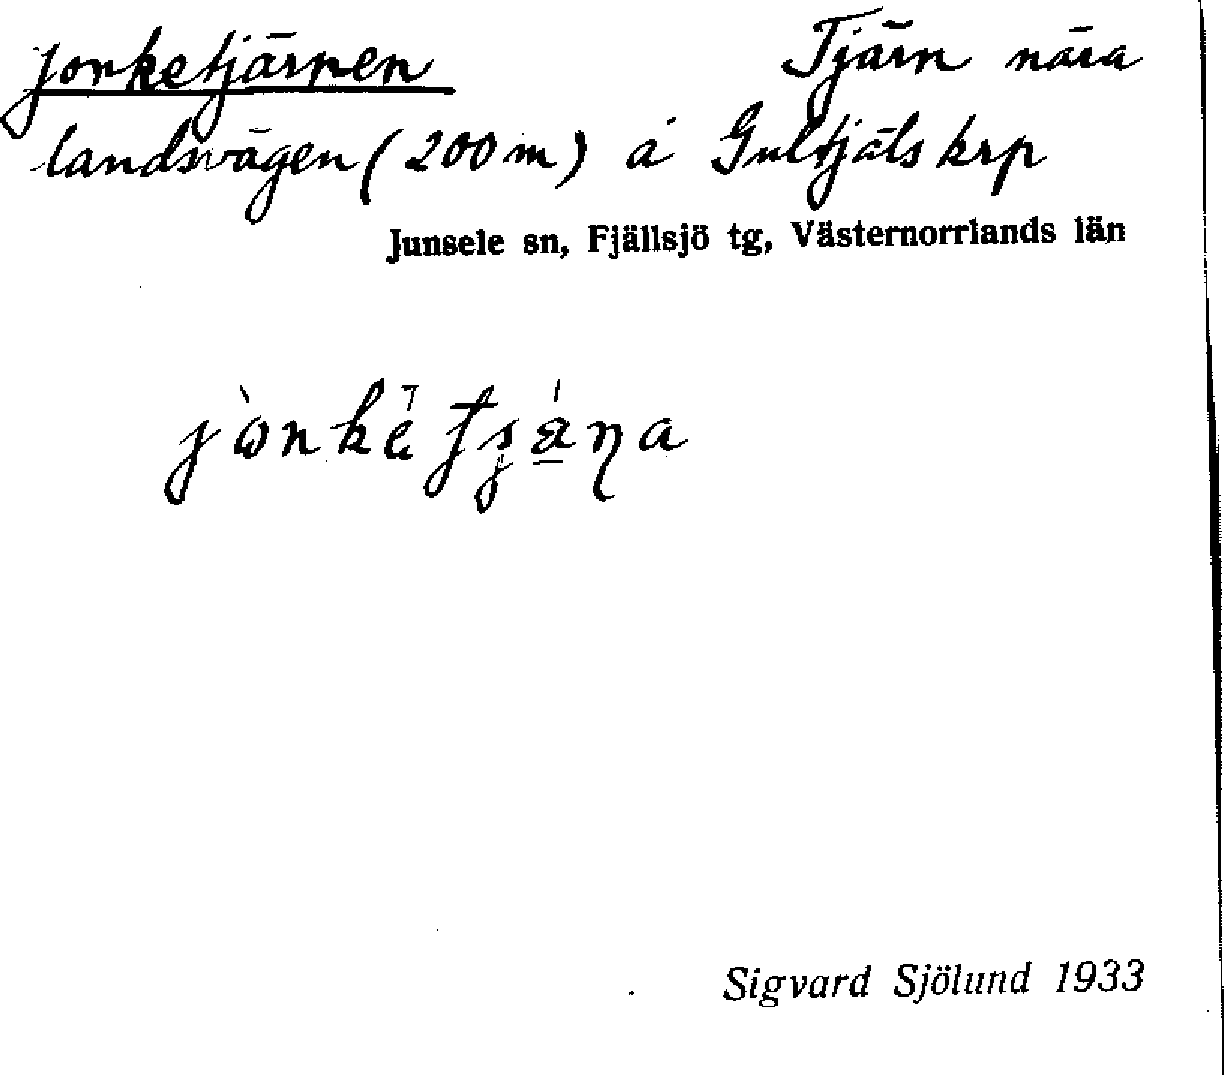 Jonketjärnen Tjärn nära
landsvägen (200 m) å Gultjäls krp
Junsele sn, Fjällsjö tg, Västernorrlands län
Sigvard Sjölund 1933